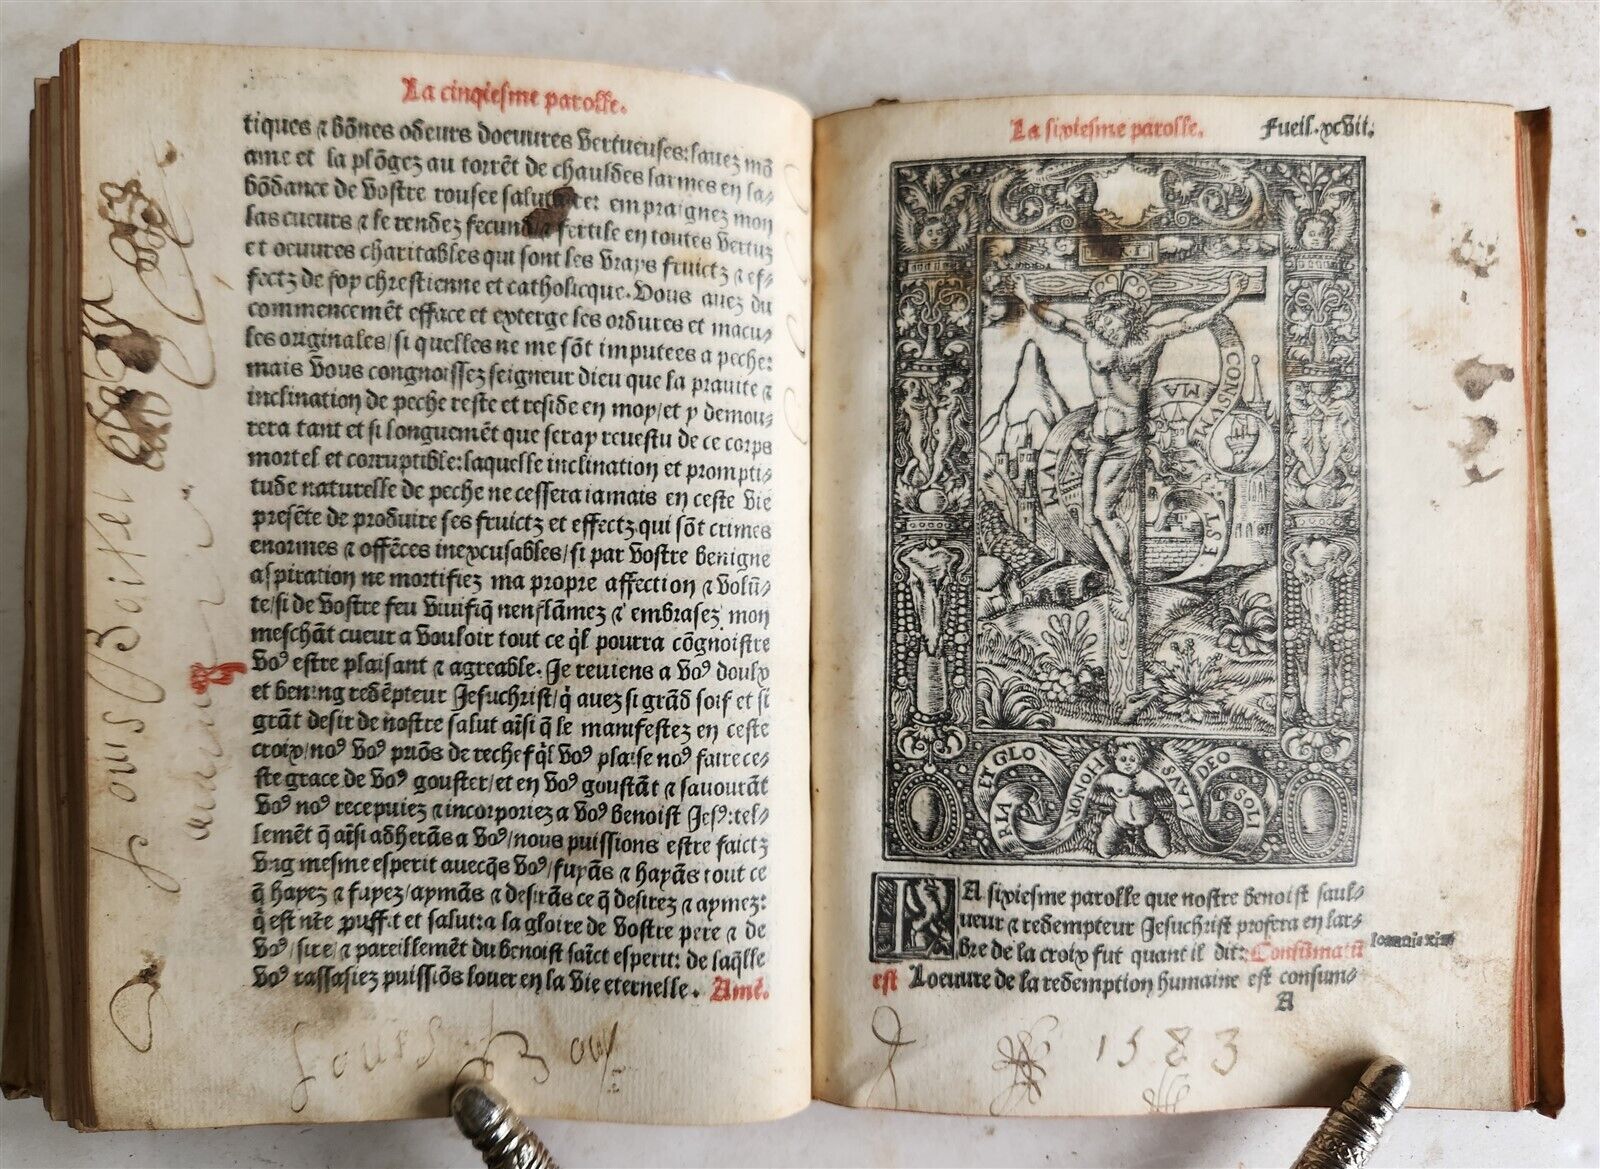 La cinqiesme parolle.
tiques ⁊ bōnes odeurs doeuures vertueuses: lauez mō
ame et la plōgez au torrēt de chauldes larmes en la⸗
bōdance de vostre rousee salutaire: empraignez mon
las cueurs ⁊ le rendez fecund ⁊ fertile en toutes vertuz
et oeuures charitables qui sont les vrays fruictz ⁊ ef⸗
fectz de foy chrestienne et catholicque. Vous auez du
commencemēt efface et exterge les ordures et macu⸗
les originales/si quelles ne me sōt imputees a peche:
mais vous congnoissez seigneur dieu que la prauite ⁊
inclination de peche reste et reside en moy/et y demou⸗
rera tant et si longuemēt que seray reuestu de ce corps
mortel et corruptible: laquelle inclination et prompti⸗
tude naturelle de peche ne cessera iamais en ceste vie
presēte de produire ses fruictz et effectz qui sōt crimes
enormes ⁊ offēces inexcusables/si par vostre benigne
aspiration ne mortifiez ma propre affection ⁊ volū⸗
te/si de vostre feu viuifiq̄ nenflāmez ⁊ embrasez mon
meschāt cueur a vouloir tout ce q̄l pourra cōgnoistre
voꝰ estre plaisant ⁊ agreable. Je reuiens a voꝰ doulx
et bening redēpteur Jesuchrist/q̄ auez si grād soif et si
grāt desir de nostre salut aīsi q̄ le manifestez en ceste
croix/noꝰ voꝰ priōs derechef q̄l voꝰ plaise noꝰ faire ce⸗
ste grace de voꝰ gouster/et en voꝰ goustāt ⁊ sauourāt
voꝰ noꝰ recepuiez ⁊ incorporiez a voꝰ benoist Jesꝰ: tel⸗
lemēt q̄ aīsi adherās a voꝰ/nous puissions estre faictz
vng mesme esperit auecq̄s voꝰ/fuyās ⁊ hayās tout ce
q̄ hayez ⁊ fuyez/aymās ⁊ desirās ce q̄ desirez ⁊ aymez:
q̄ est nr̄e ꝓuffit et salut: a la gloire de vostre pere ⁊ de
voꝰ/sire/⁊ pareillemēt du benoist saīct esperit: de laq̄lle
voꝰ rassasiez puissiōs louer en la vie eternelle. Amē.
La sixiesme parolle. Fueil. xcvii.
CONSVM
MA
TVM
EST
SOLI DEO LAVS HONOR ET GLORIA
LA sixiesme parolle que nostre benoist saul⸗
ueur ⁊ redempteur Jesuchrist profera en lar⸗
bre de la croix fut quant il dit: Consūmatū
est Loeuure de la redemption humaine est consum⸗
Ioannis xix
A
1583